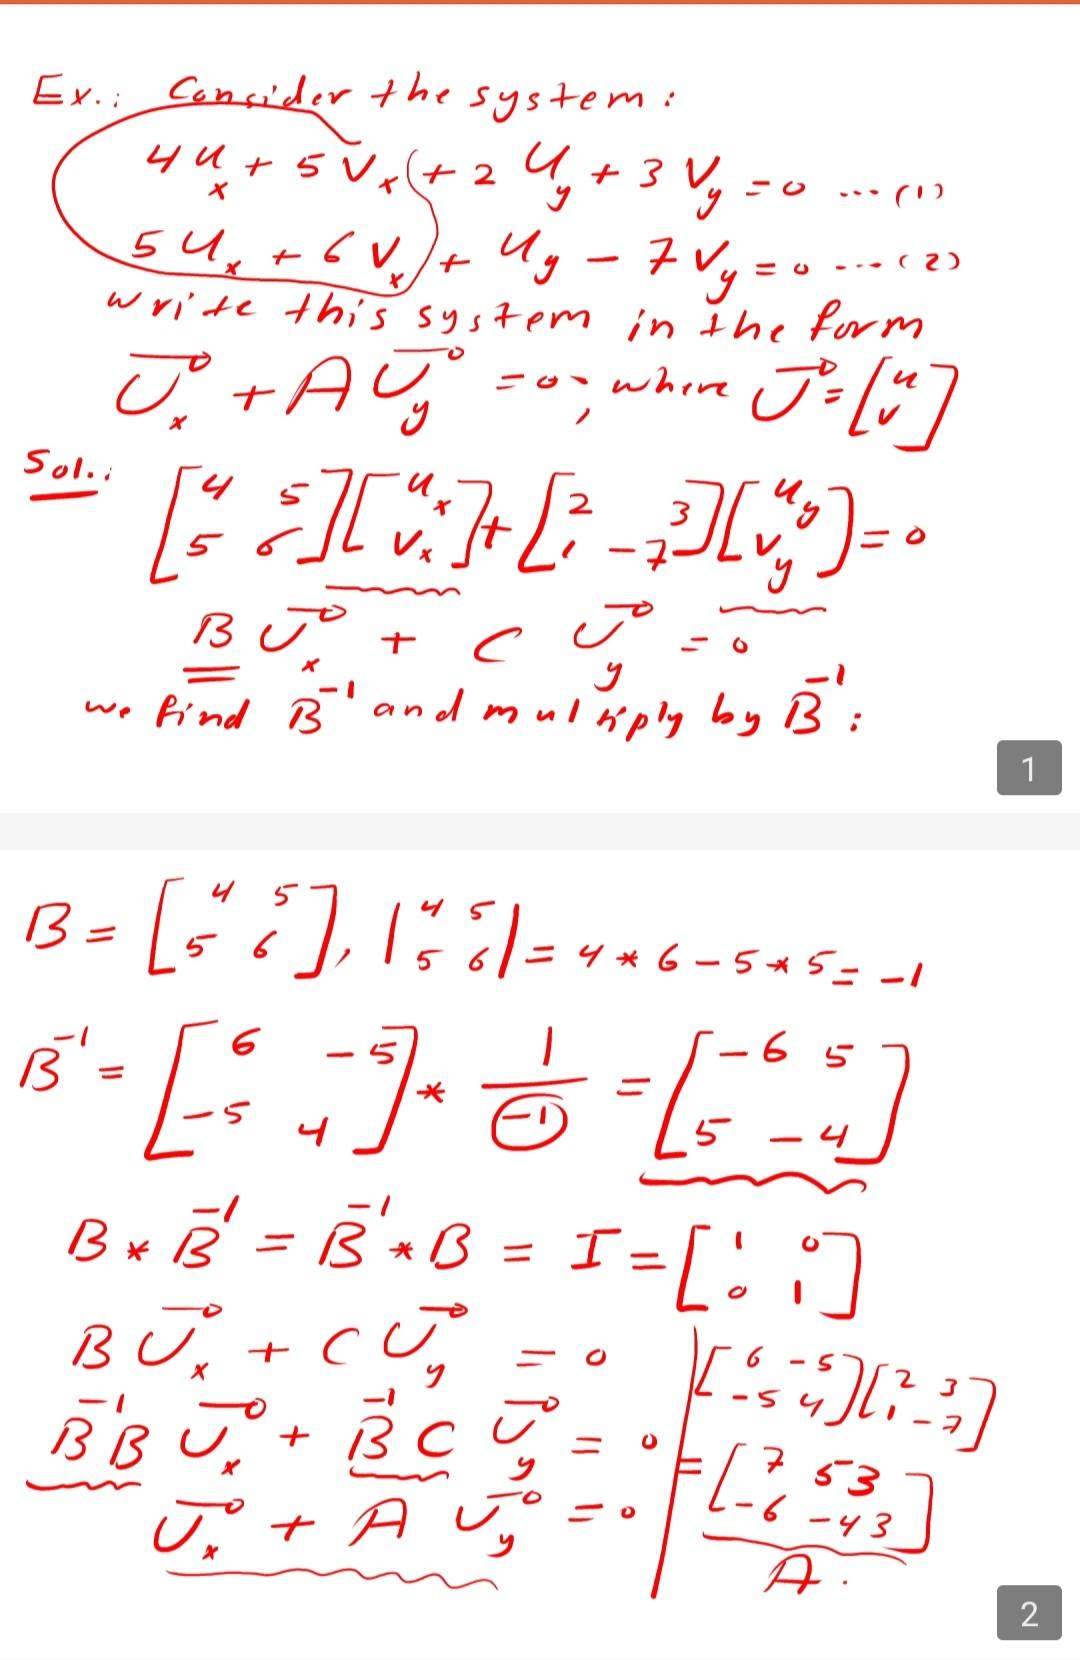 Ex.: Consider the system:
4u_x + 5v_x + 2u_y + 3v_y = 0 ... (1)
5u_x + 6v_x + u_y - 7v_y = 0 ... (2)
write this system in the form
U⃗_x + A U⃗_y = 0, where U⃗ = [u; v]
Sol.: [4 5; 5 6] [u_x; v_x] + [2 3; 1 -7] [u_y; v_y] = 0
B U⃗_x + C U⃗_y = 0
we find B^-1 and multiply by B^-1:
1
B = [4 5; 5 6], |4 5; 5 6| = 4 * 6 - 5 * 5 = -1
B^-1 = [6 -5; -5 4] * 1/(-1) = [-6 5; 5 -4]
B * B^-1 = B^-1 * B = I = [1 0; 0 1]
B U⃗_x + C U⃗_y = 0
B^-1 B U⃗_x + B^-1 C U⃗_y = 0
U⃗_x + A U⃗_y = 0
[6 -5; -5 4] [2 3; 1 -7]
= [7 53; -6 -43]
A.
2